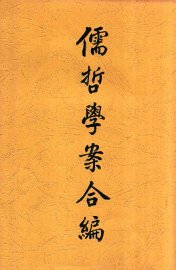 儒哲學案合編